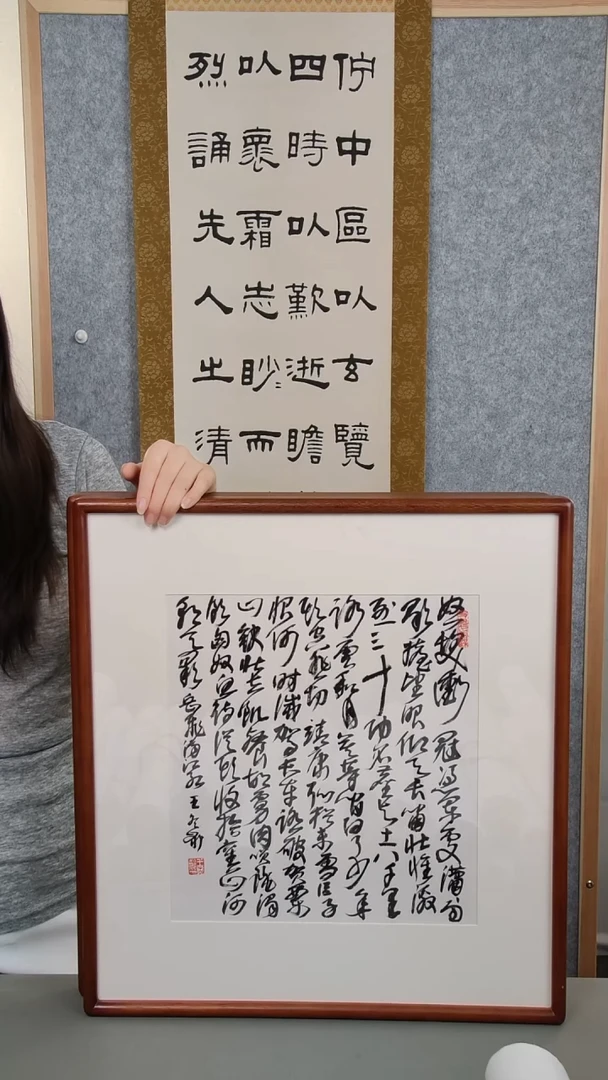 佇中區以玄覽
四時以歎逝瞻
以褱霜志眇〻而
烈誦先人之清
怒髮衝冠憑闌處瀟〻雨
歇擡望眼仰天長嘯壯懷激
烈三十功名塵與土八千里
路雲和月莫等閒白了少年
頭空悲切靖康恥猶未雪臣子
恨何時滅駕長車踏破賀蘭
山缺壯志飢餐胡虜肉笑談渴
飲匈奴血待從頭收拾舊山河
朝天闕 岳飛滿江紅 王冬齡